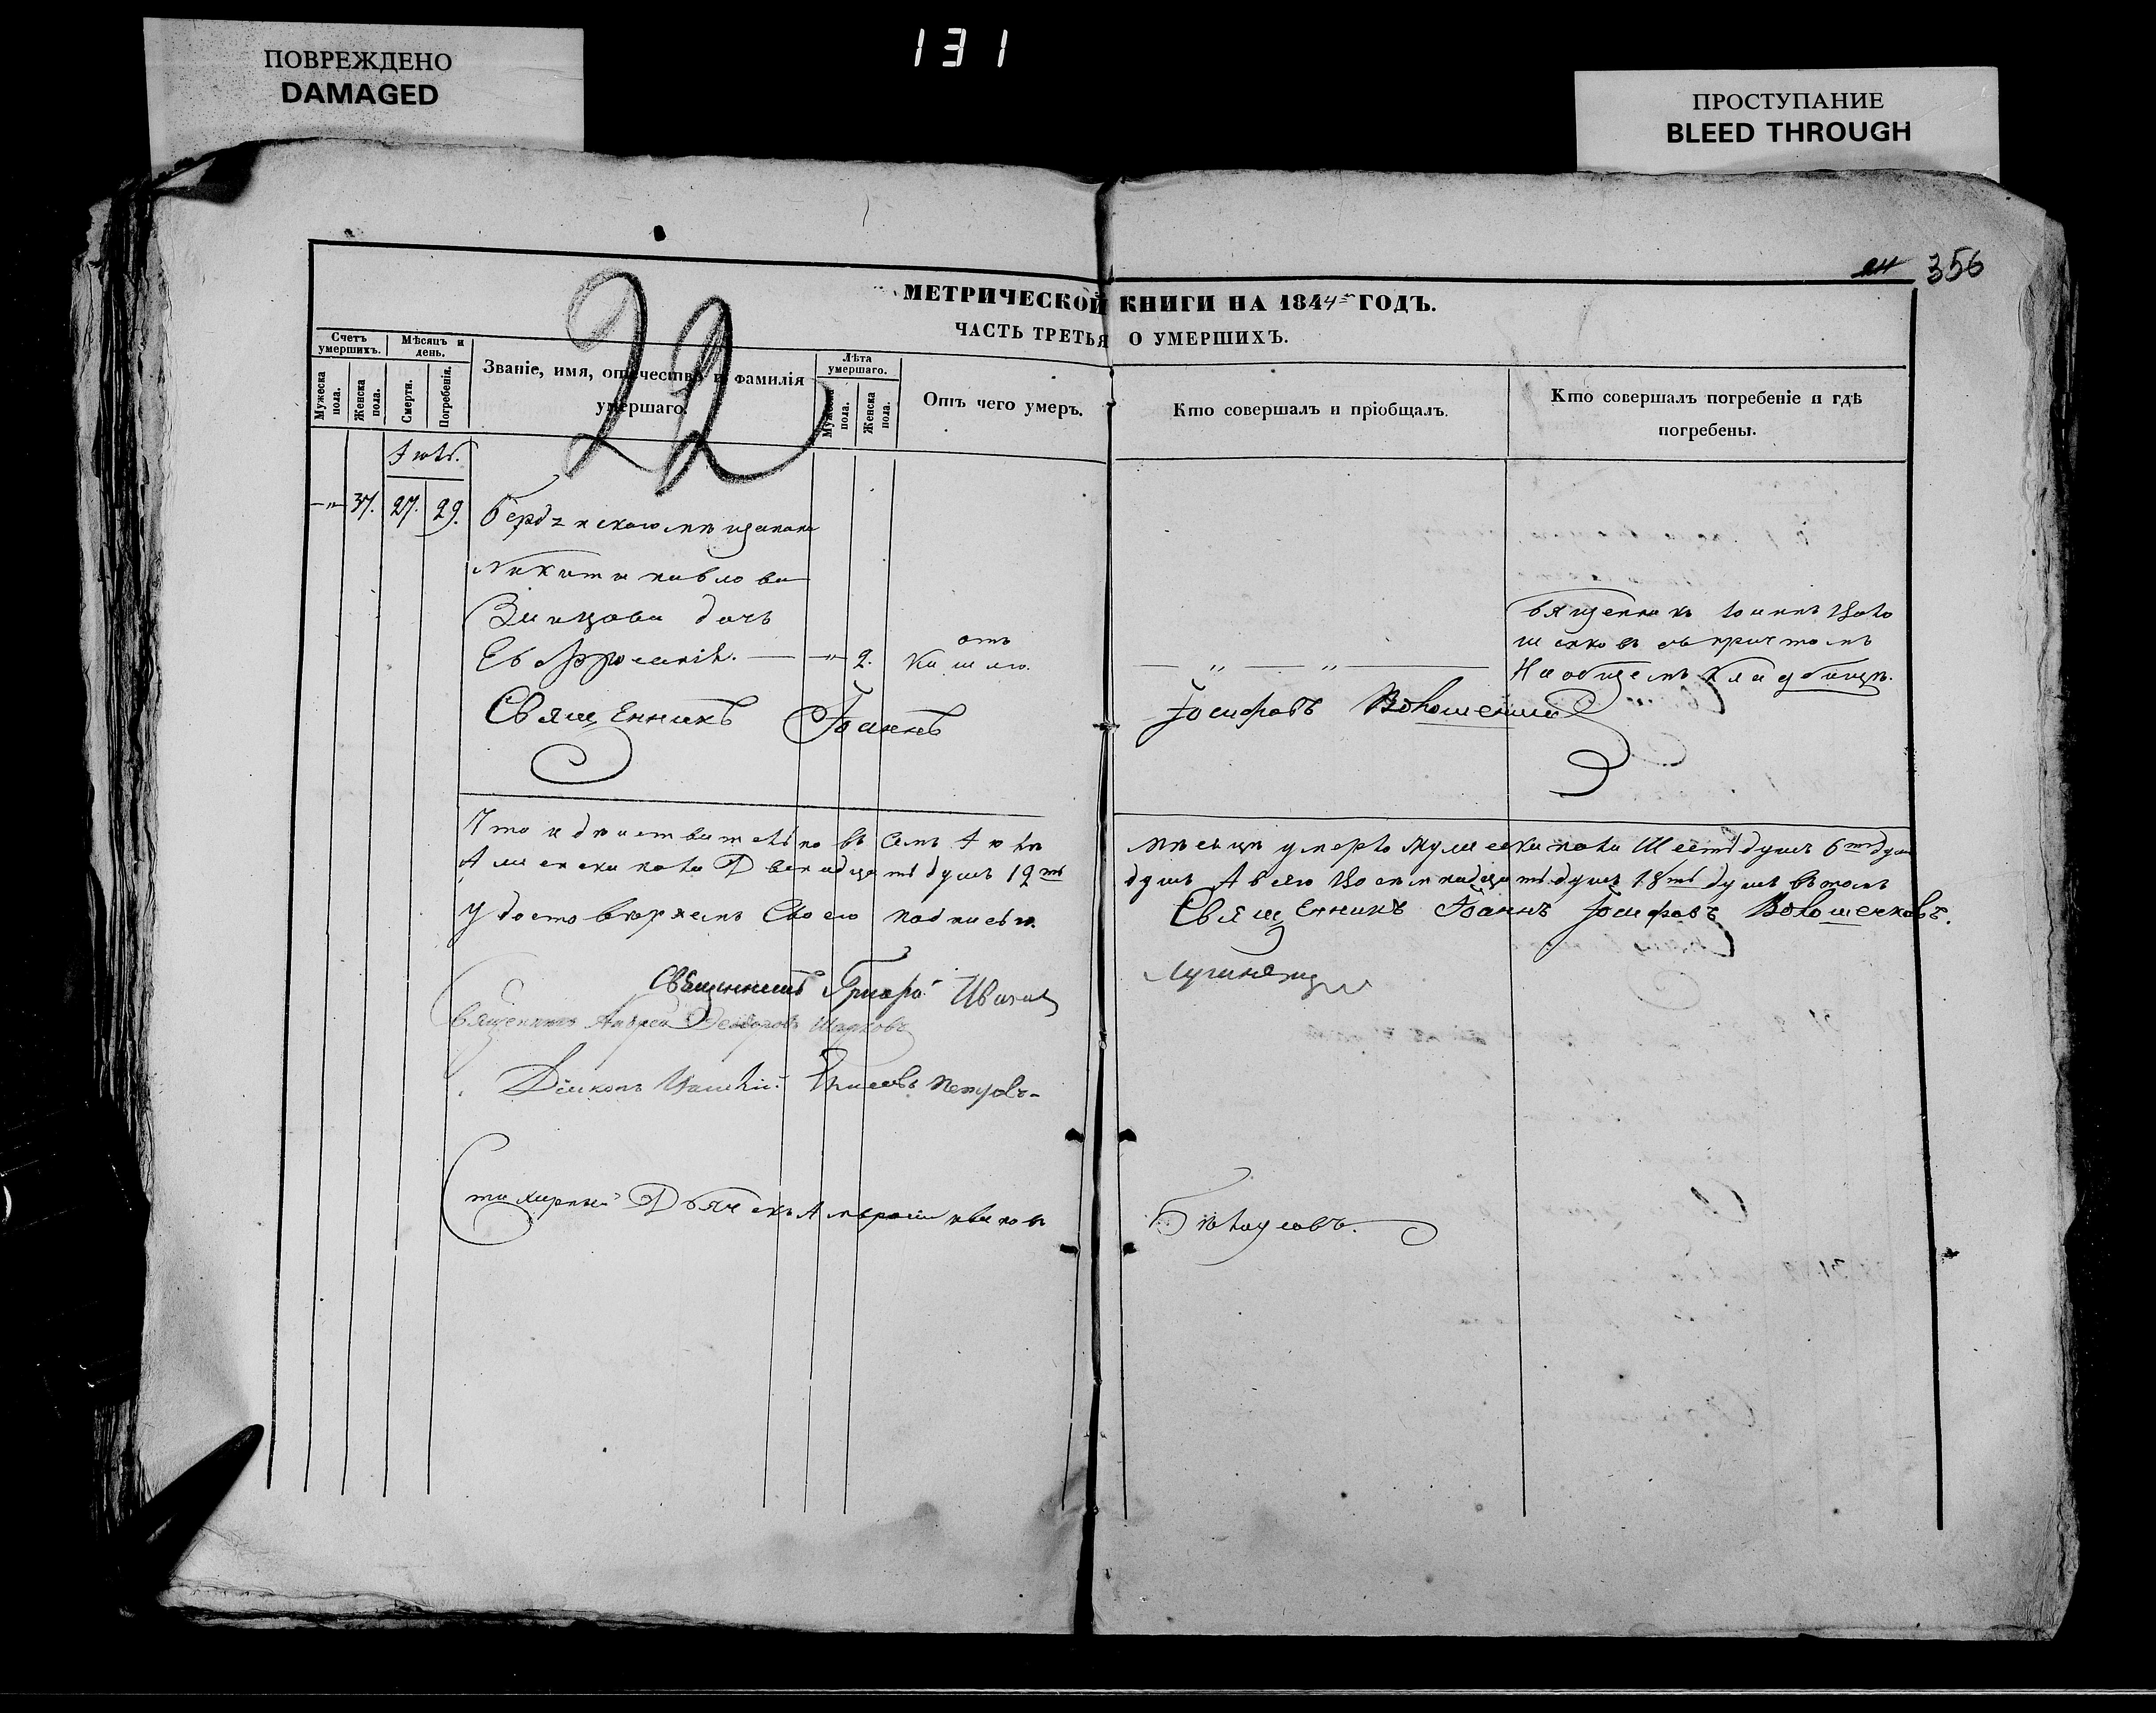 ПОВРЕЖДЕНО
DAMAGED
131
ПРОСТУПАНИЕ
BLEED THROUGH
356
22
МЕТРИЧЕСКОЙ КНИГИ НА 1844 ГОДЪ.
ЧАСТЬ ТРЕТЬЯ О УМЕРШИХЪ.
Счетъ умершихъ.
Мужеска пола.
Женска пола.
Мѣсяцъ и день.
Смерти.
Погребенія.
Званіе, имя, отчество и фамилія умершаго.
Лѣта умершаго.
Мужеска пола.
Женска пола.
Отъ чего умеръ.
Кто совершалъ и пріобщалъ.
Кто совершалъ погребеніе и гдѣ погребены.
Июль.
—"— 37. 27. 29.
мещанина
Никиты Павлова
дочь
Евфросинія. — —"— 2.
отъ
кашлю.
— " — " —
Священникъ Іоаннъ Воло
шенковъ съ причтомъ
На общемъ кладбищѣ.
Священникъ Іоаннъ Іосифовъ
Что дѣйствительно въ семъ Июлѣ мѣсяцѣ умерло мужеска пола Шесть душъ 6ть душъ
А женска пола Двенадцать душъ 12ть душъ А всего Восемнадцать душъ 18ть душъ въ томъ
удостовѣряемъ Своею подписью. Священникъ Іоаннъ Іосифовъ Волошенковъ.
Священникъ
Священникъ Андрей Феодоровъ
Діаконъ Петровъ
Стихарный Дьячекъ Амвросій Ивановъ Бѣлоусовъ.